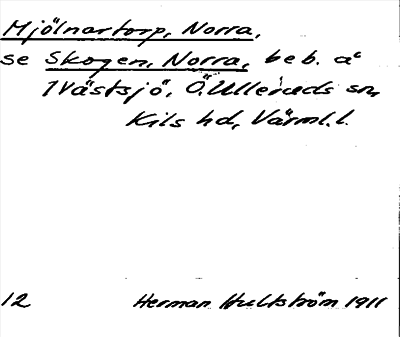 Mjölnartorp, Norra,
se Skogen, Norra, beb. å
1 Västsjö, Ö. Ulleruds sn,
Kils hd, Värml. l.
12 Herman Hultström 1911